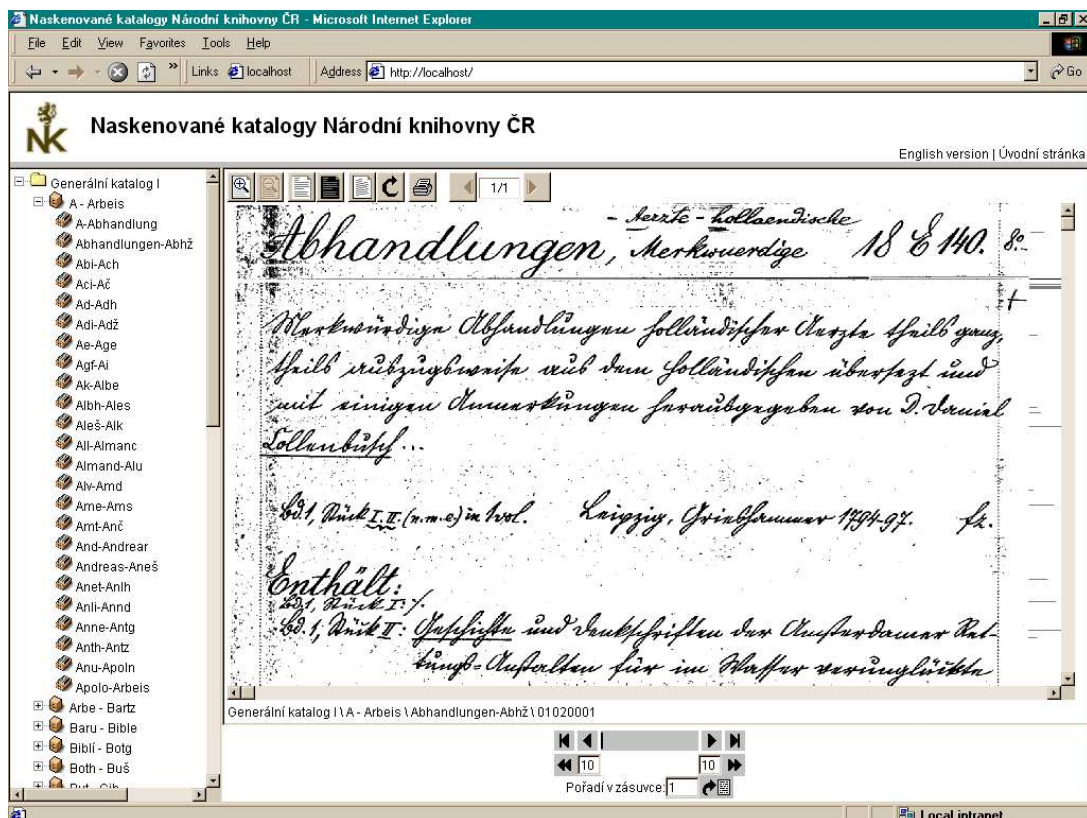 Naskenované katalogy Národní knihovny ČR - Microsoft Internet Explorer
File Edit View Favorites Tools Help
» Links localhost Address http://localhost/ Go
NK Naskenované katalogy Národní knihovny ČR
English version | Úvodní stránka
Generální katalog I
A - Arbeis
A-Abhandlung
Abhandlungen-Abhž
Abi-Ach
Aci-Ač
Ad-Adh
Adi-Adž
Ae-Age
Agf-Ai
Ak-Albe
Albh-Ales
Aleš-Alk
All-Almanc
Almand-Alu
Alv-Amd
Ame-Ams
Amt-Anč
And-Andrear
Andreas-Aneš
Anet-Anlh
Anli-Annd
Anne-Antg
Anth-Antz
Anu-Apoln
Apolo-Arbeis
Arbe - Bartz
Baru - Bible
Biblí - Botg
Both - Buš
1/1
- Aerzte - hollaendische
Abhandlungen, Merkwuerdige 18 E 140. 8º
Merkwürdige Abhandlungen holländischer Aerzte theils ganz,
theils auszugsweise aus dem Holländischen übersezt und
mit einigen Anmerkungen herausgegeben von D. Daniel
Collenbusch...
Bd. 1, Stück I. II. (n.m.e) in 1 vol. Leipzig, Grieshammer 1794-97. fz.
Enthält:
Bd. 1, Stück I: %.
Bd. 1, Stück II: Geschichte und Denkschriften der Amsterdamer Ret-
tungs-Anstalten für im Wasser verunglückte
Generální katalog I \ A - Arbeis \ Abhandlungen-Abhž \ 01020001
10 10
Pořadí v zásuvce: 1
Local intranet